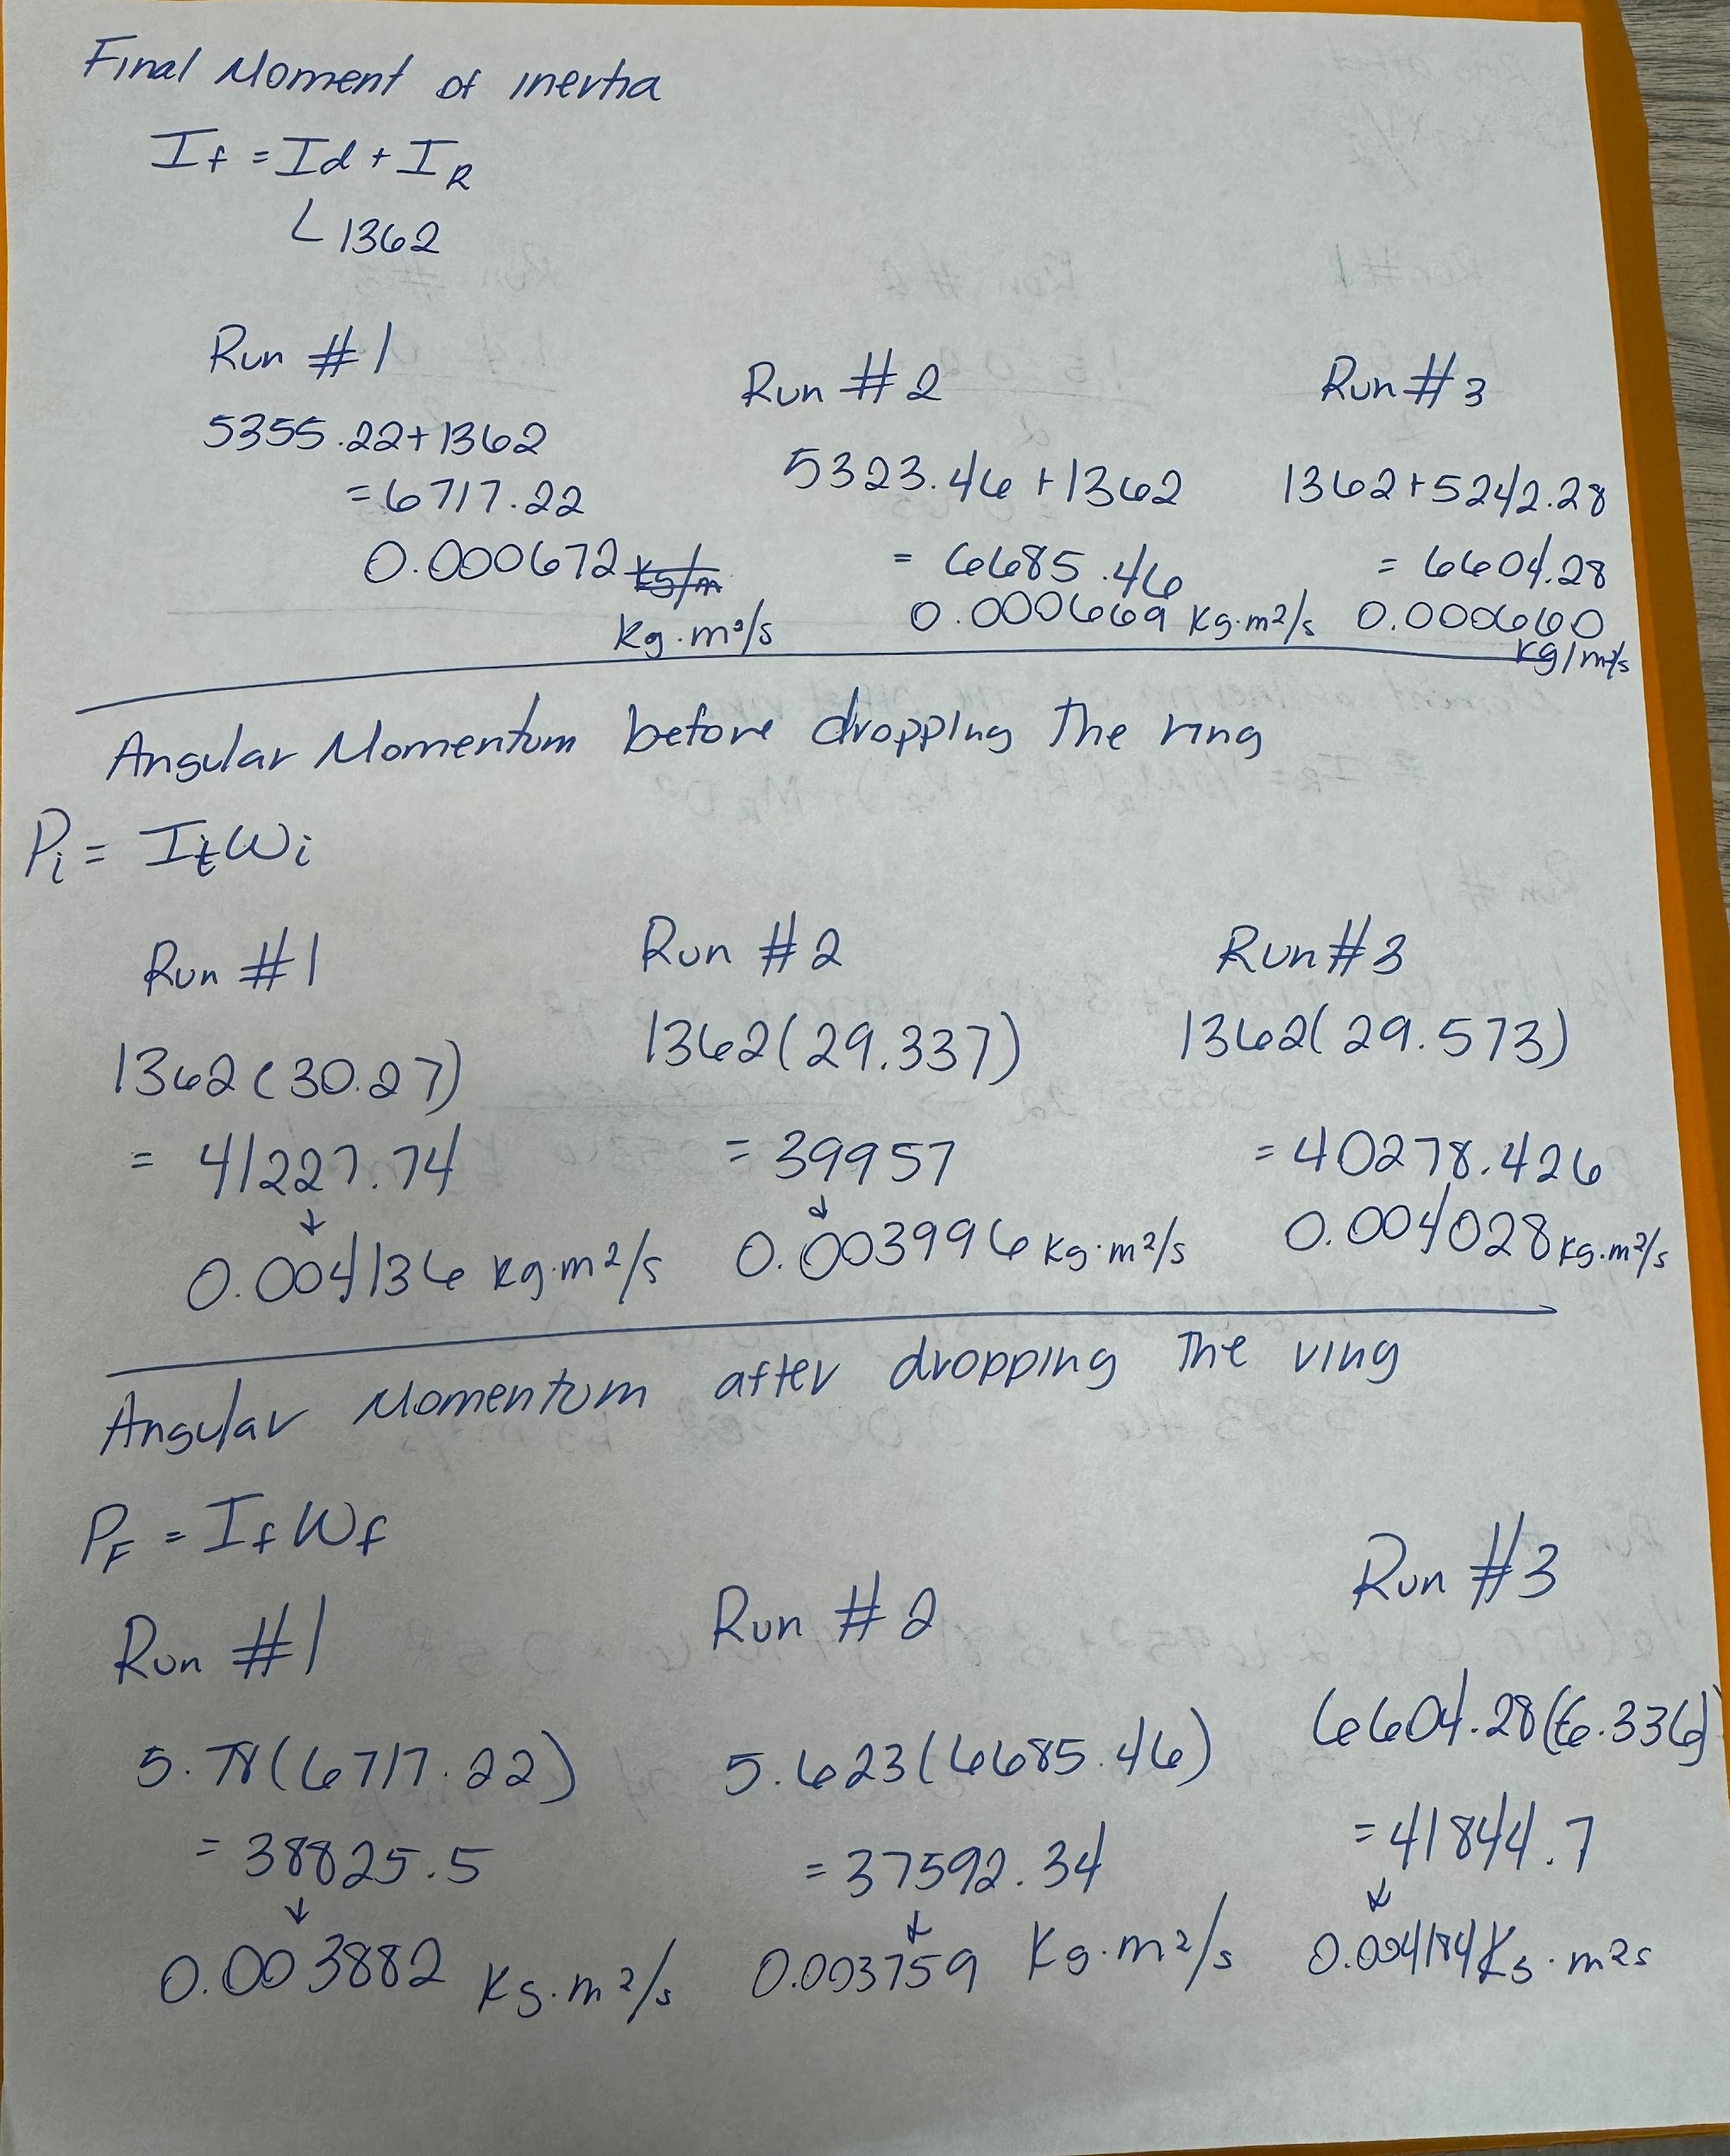 Final Moment of inertia
If = Id + IR
1362
Run #1
5355.22+1362
=6717.22
0.000672 kg/m
kg.m²/s
Run #2
5323.46+1362
= 6685.46
0.000669 kg.m²/s
Run #3
1362+5242.28
= 6604.28
0.000660
kg/m²/s
Angular Momentum before dropping the ring
Pi = ItWi
Run #1
1362(30.27)
= 41227.74
↓
0.004136 kg.m²/s
Run #2
1362(29.337)
= 39957
↓
0.003996 kg.m²/s
Run #3
1362(29.573)
= 40278.426
0.004028 kg.m²/s
Angular Momentum after dropping the ring
PF = IfWf
Run #1
5.78(6717.22)
= 38825.5
↓
0.003882 kg.m²/s
Run #2
5.623(6685.46)
= 37592.34
↓
0.003759 Kg.m²/s
Run #3
6604.28(6.336)
= 41844.7
↓
0.004184 Kg.m2s